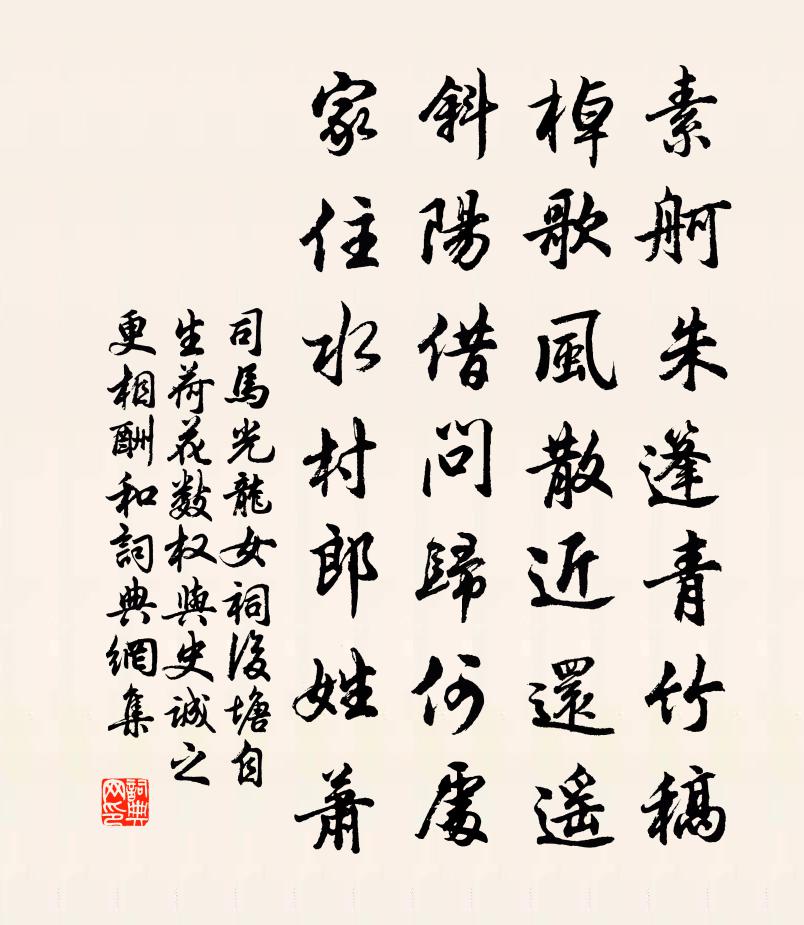 素舸朱蓬青竹稿
棹歌風散近還遥
斜陽借問歸何處
家住水村郎姓蕭
司馬光龍女祠後塘自
生荷花数枚與史誠之
更相酬和詞典網集
詞典网印